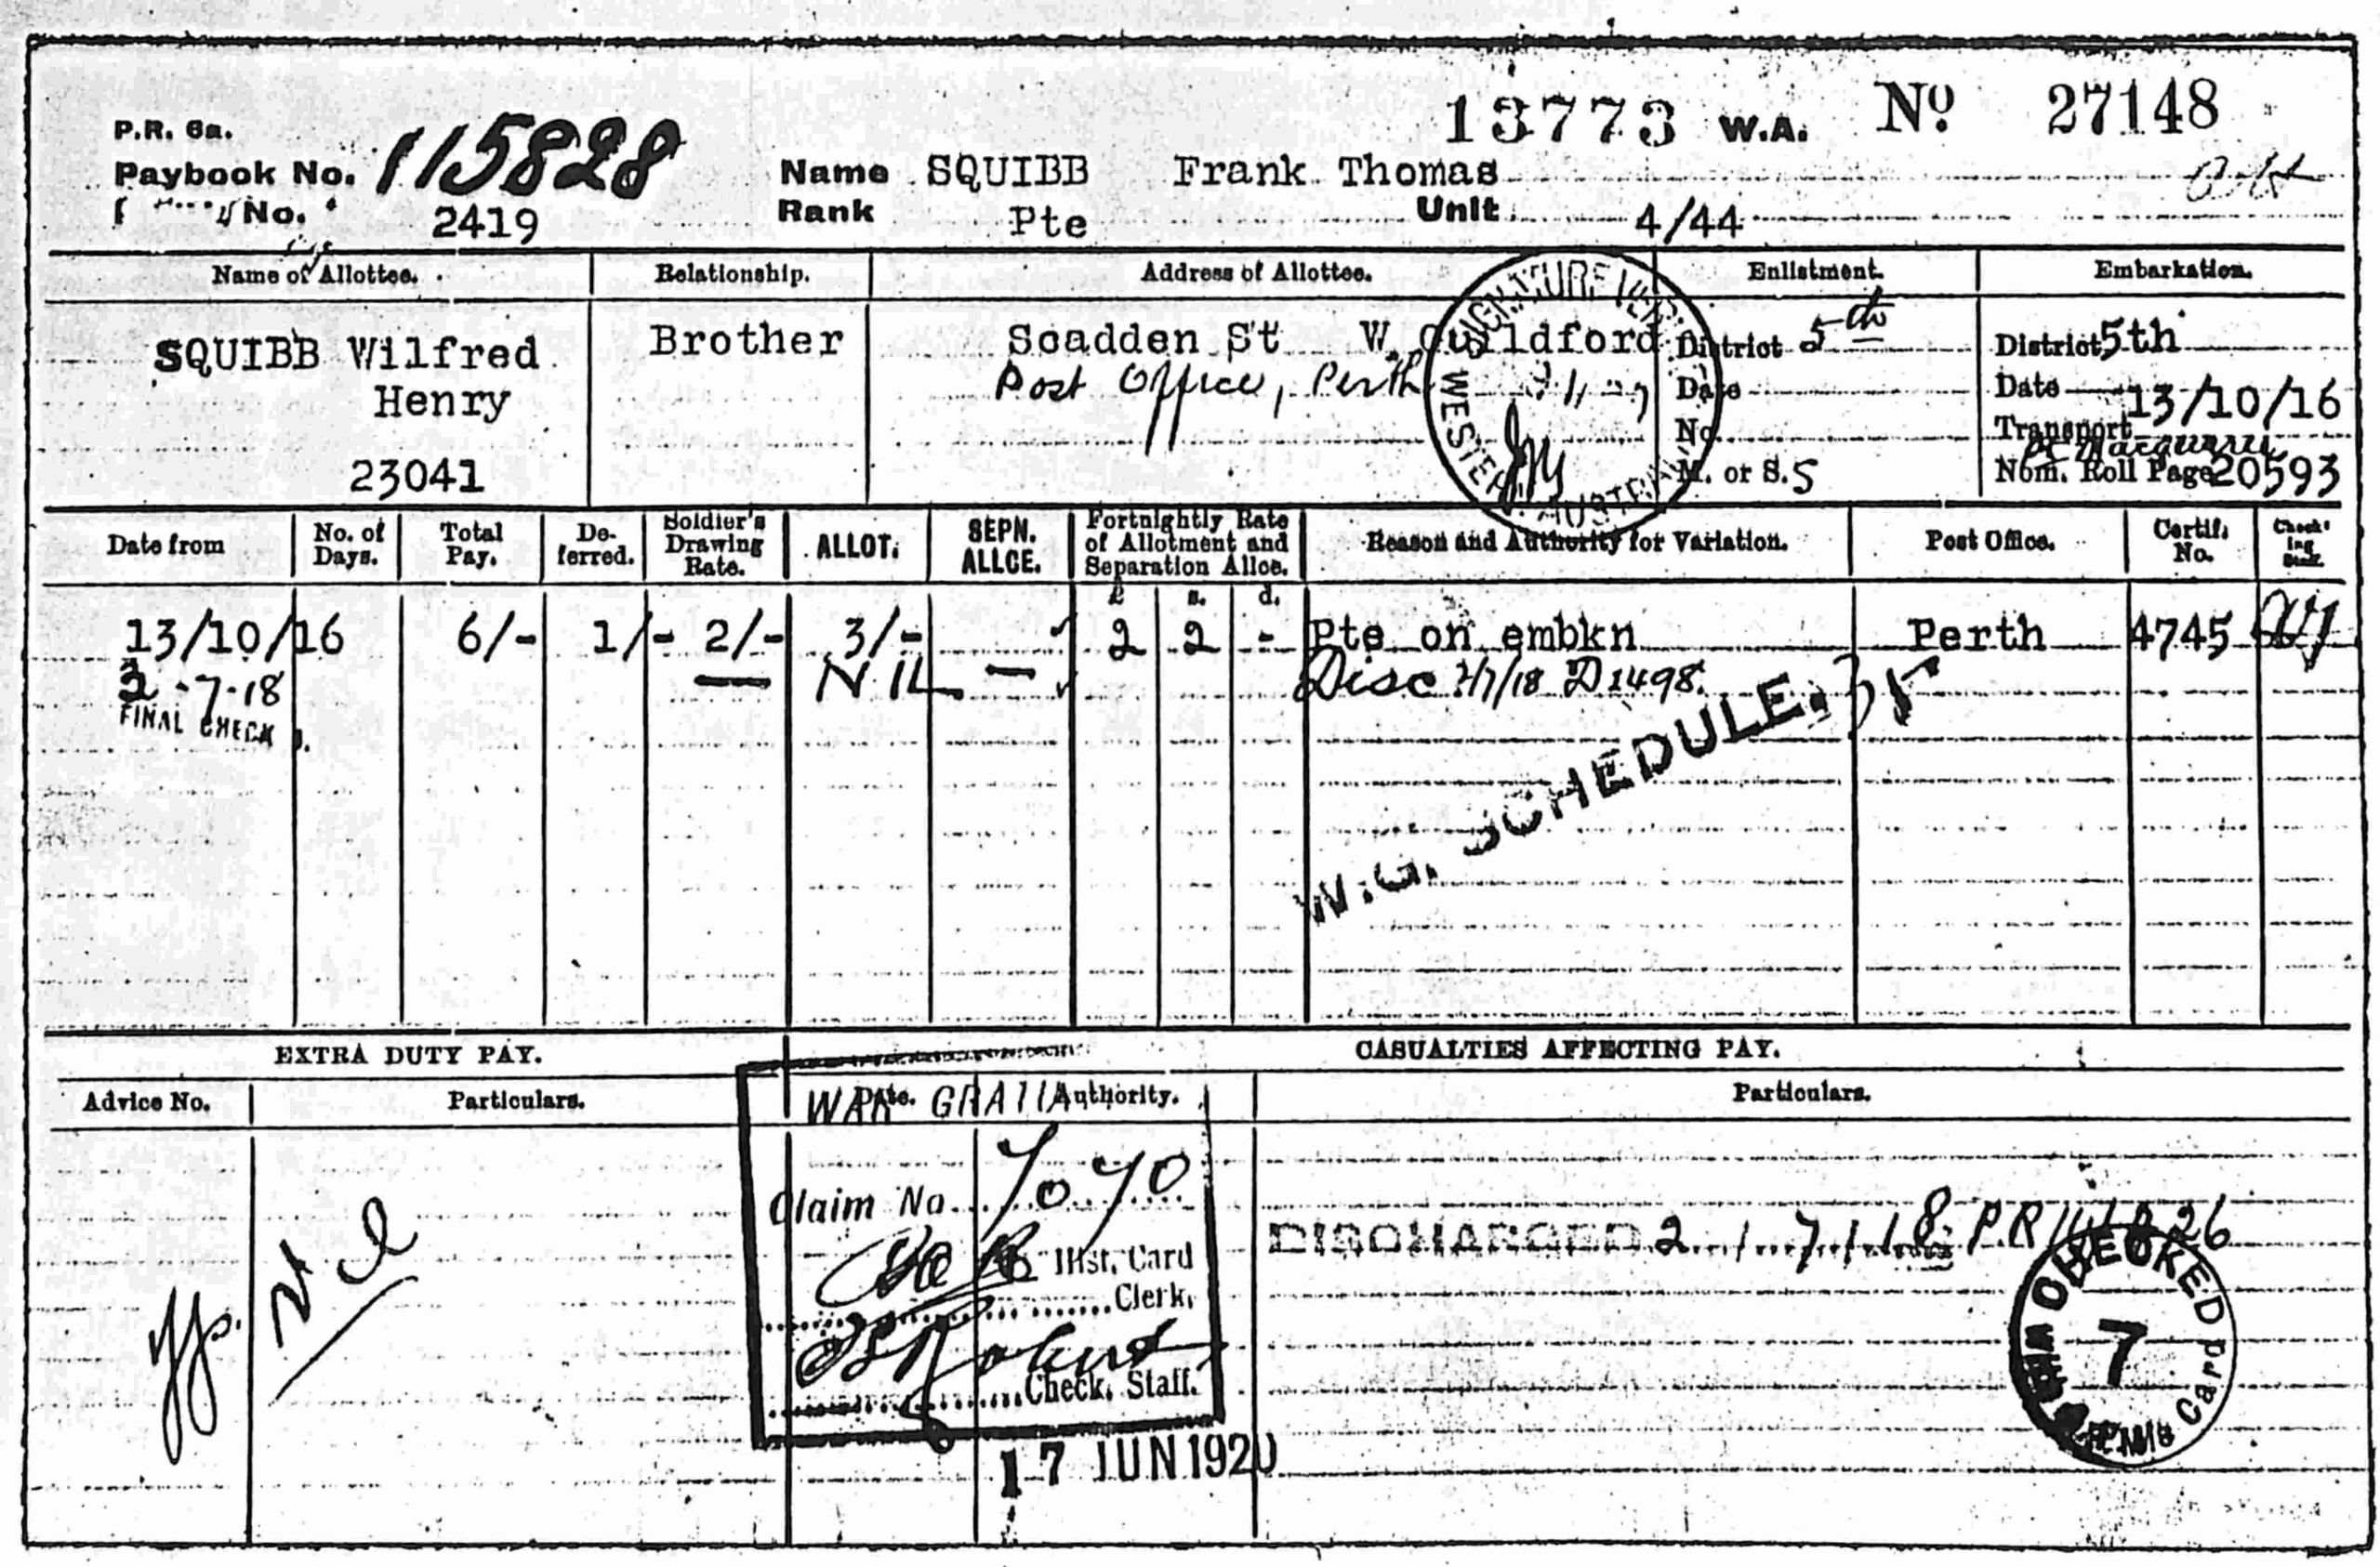 13773 W.A. Nº 27148
P.R. 6a.
Paybook No. 115828 Name SQUIBB Frank Thomas
No. 2419 Rank Pte Unit 4/44
Name of Allottee. Relationship. Address of Allottee. Enlistment. Embarkation.
SQUIBB Wilfred Brother Scadden St W. Guildford District 5th District 5th
Henry Post Office, Perth Date Date 13/10/16
No. Transport
23041 M. or S. 5 Nom. Roll Page 20593
SIGNATURE WESTERN AUSTRALIA
Date from No. of Days. Total Pay. De-ferred. Soldier's Drawing Rate. ALLOT. SEPN. ALLCE. Fortnightly Rate of Allotment and Separation Allce. Reason and Authority for Variation. Post Office. Certif. No. Check'ing Staff.
£ s. d.
13/10/16 6/- 1/- 2/- 3/- 2 2 - Pte on embkn Perth 4745
2-7-18 — NIL — Disc 2/7/18 D1498.
FINAL CHECK
W.G. SCHEDULE. 35
EXTRA DUTY PAY. CASUALTIES AFFECTING PAY.
Advice No. Particulars. Date. Authority. Particulars.
WAR GRA
Claim No. 7070
Hist. Card
Clerk.
Check. Staff.
17 JUN 1920
Nil
DISCHARGED 2/7/18
CHECKED
7
Card